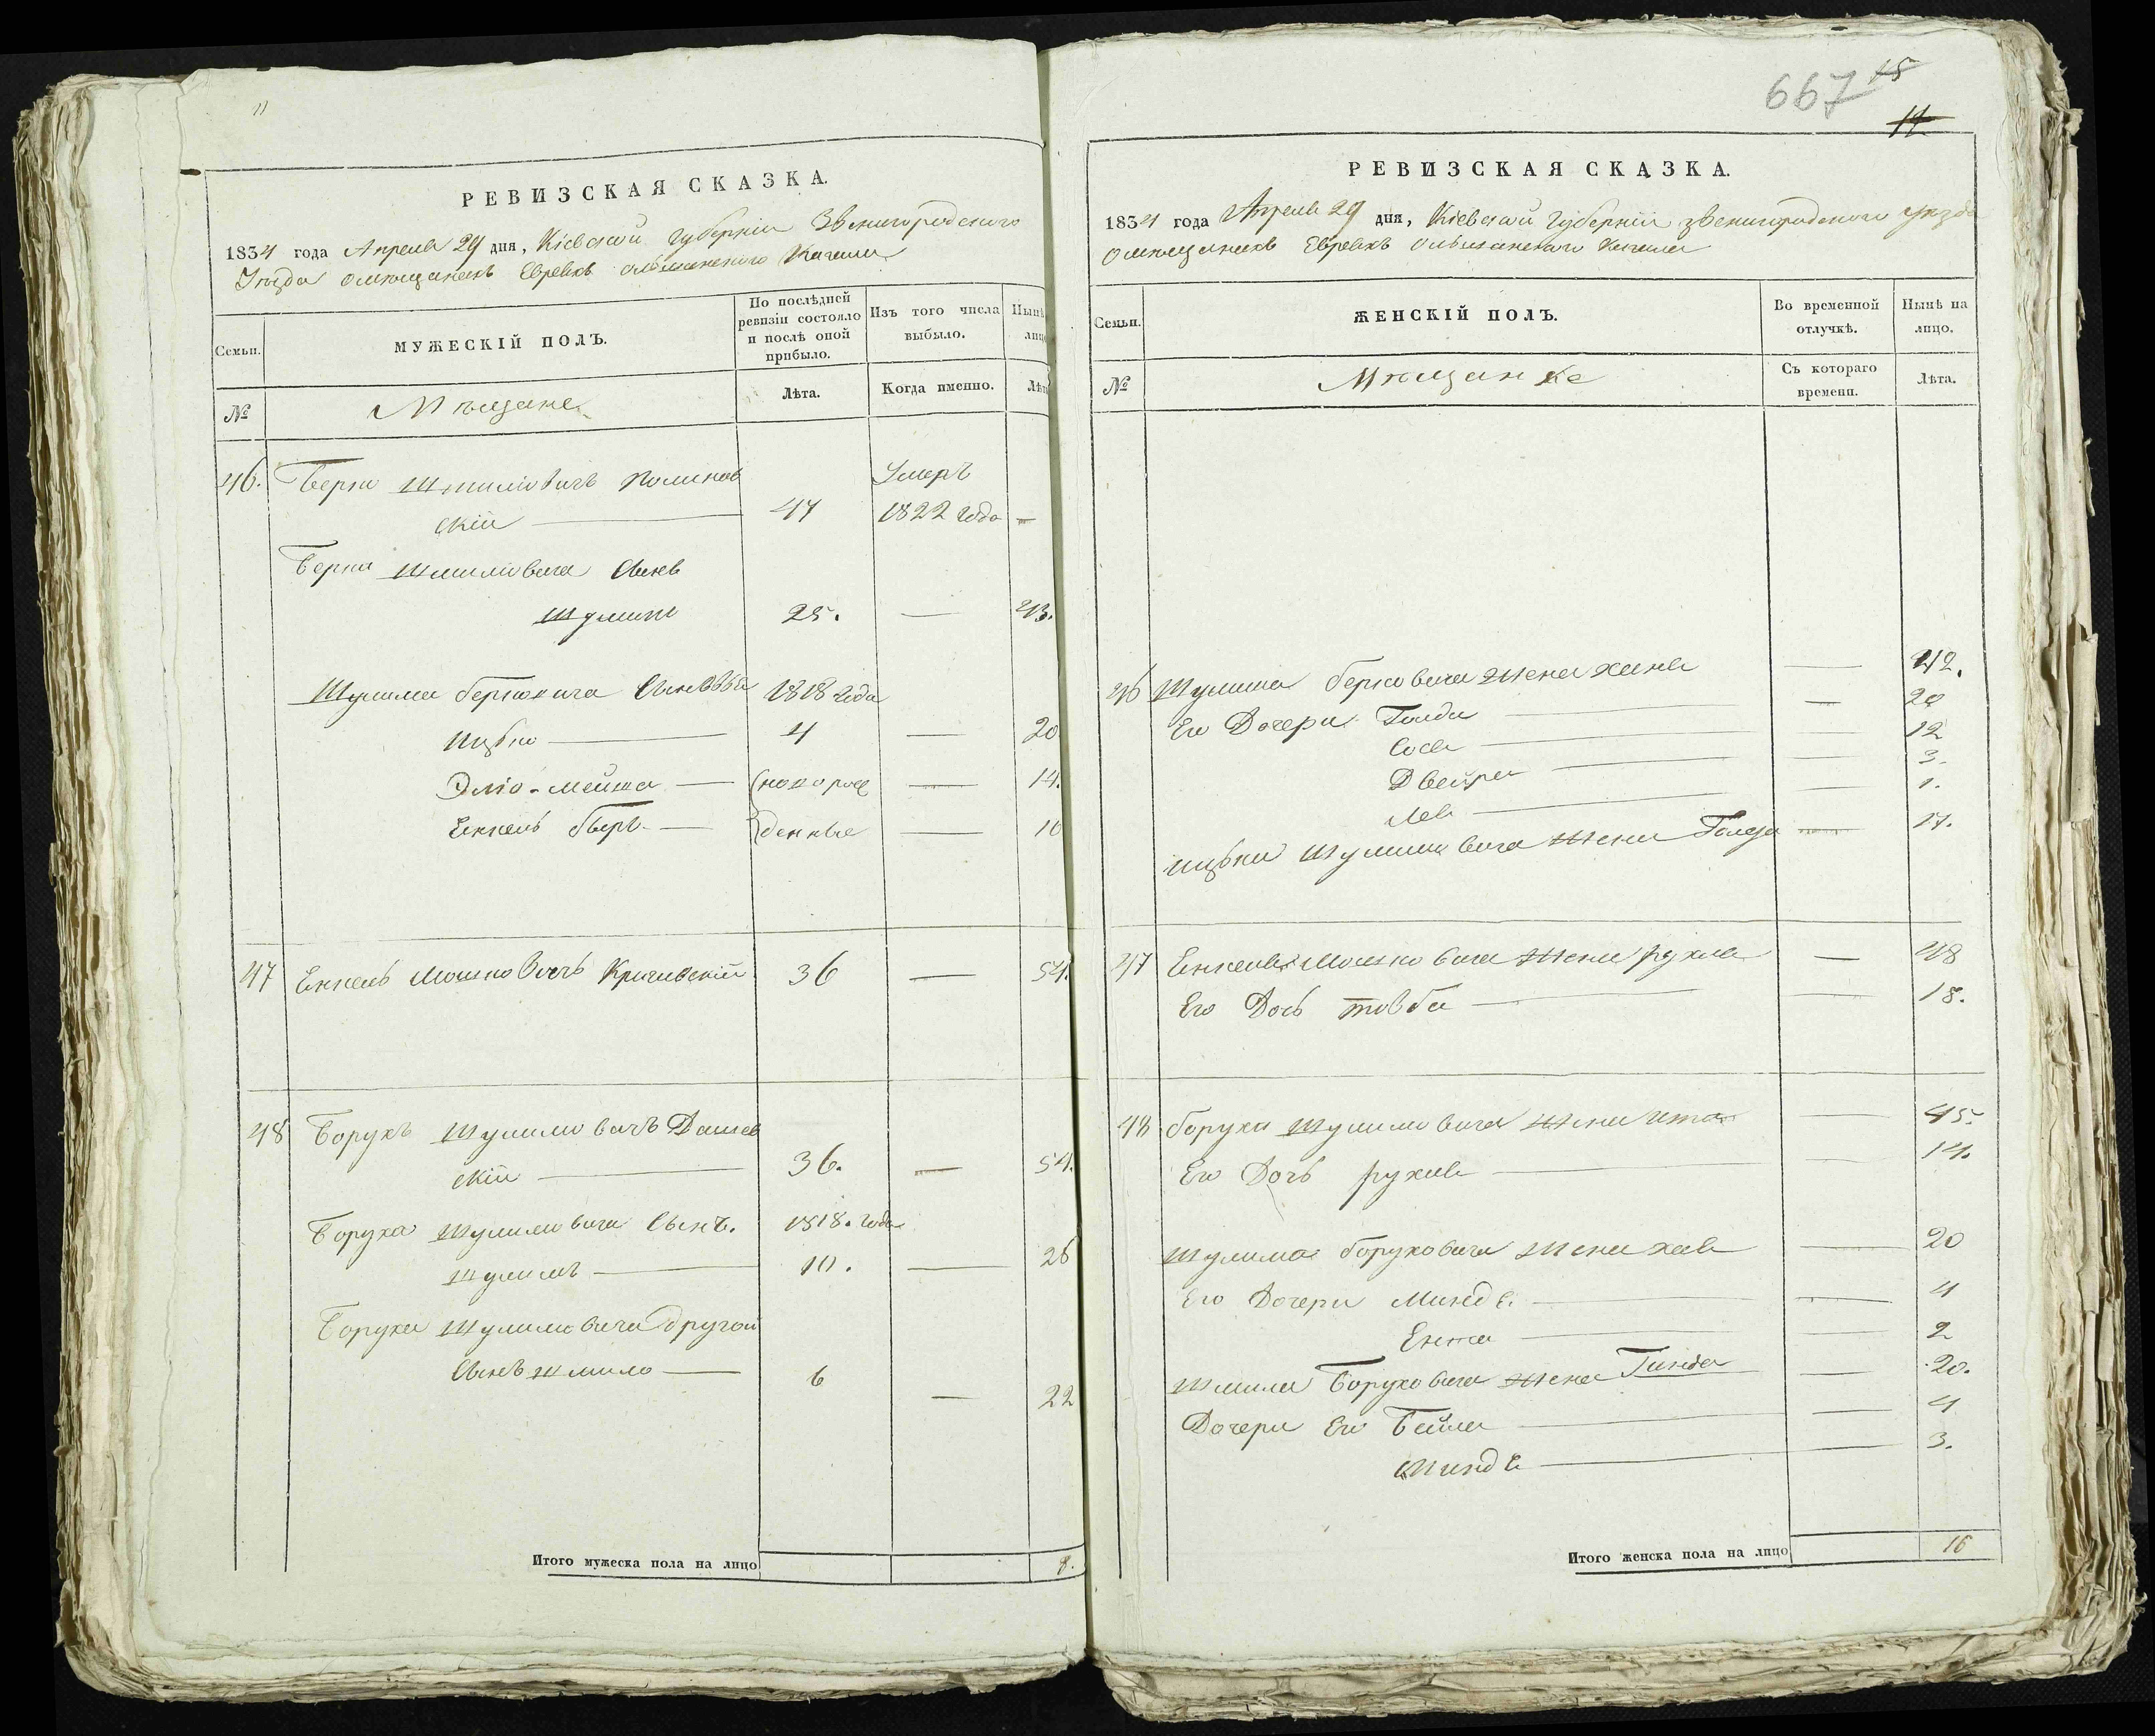 11
РЕВИЗСКАЯ СКАЗКА.
1834 года Апреля 29 дня, Кіевской Губерніи Звенигородского
Уезда омещанехъ Евреяхъ ольшанского Кагала
Семьи.
МУЖЕСКІЙ ПОЛЪ.
По послѣдней ревизіи состояло и послѣ оной прибыло.
Изъ того числа выбыло.
Нынѣ
лицо
№
Мещане
Лѣта.
Когда именно.
Лѣта
46. Берко Шмилiовичъ
скій 47 Умеръ 1822 года —
Берка Шмилiовича Сынъ
Шулимъ 25. — 43.
Шулима Берковича Сыновья 1818 года
Ицько 4 — 20
Элiо-Мейша новорож — 14.
Енкель Гберъ денные — 10
47 Енкель Мошковичъ Кричевскій 36 — 54.
48 Борухъ Шулимовичъ Дашев
скій 36. — 54.
Боруха Шулимовича Сынъ. 1818. года
Шулимъ 10. — 26
Боруха Шулимовича другой
Сынъ Шмило 6 — 22
Итого мужеска пола на лицо 9.
667
15
14
РЕВИЗСКАЯ СКАЗКА.
1834 года Апреля 29 дня, Кіевской Губерніи звенигородского уезда
омещанехъ Евреяхъ ольшанского Кагала
Семьи.
ЖЕНСКІЙ ПОЛЪ.
Во временной отлучкѣ.
Нынѣ на лицо.
№
Мещанке
Съ котораго времени.
Лѣта.
46 Шулима Берковича жена хана — 42.
Его Дочери Голда — 20
Сося — 12
Двейра — 3.
Лея — 1.
ицьки Шулимовича жена — 17.
47 Енкеля Мошковича жена рухля — 48
Его Дочь товба — 18.
48 Боруха Шулимовича жена ита — 45.
Его Дочь рухля — 14.
Шулима Боруховича жена хая — 20
Его Дочери Миндя. — 4
Ента — 2
Шмила Боруховича жена Гинда — 20.
Дочери Его Бейла — 4
Миндя — 3.
Итого женска пола на лицо 16